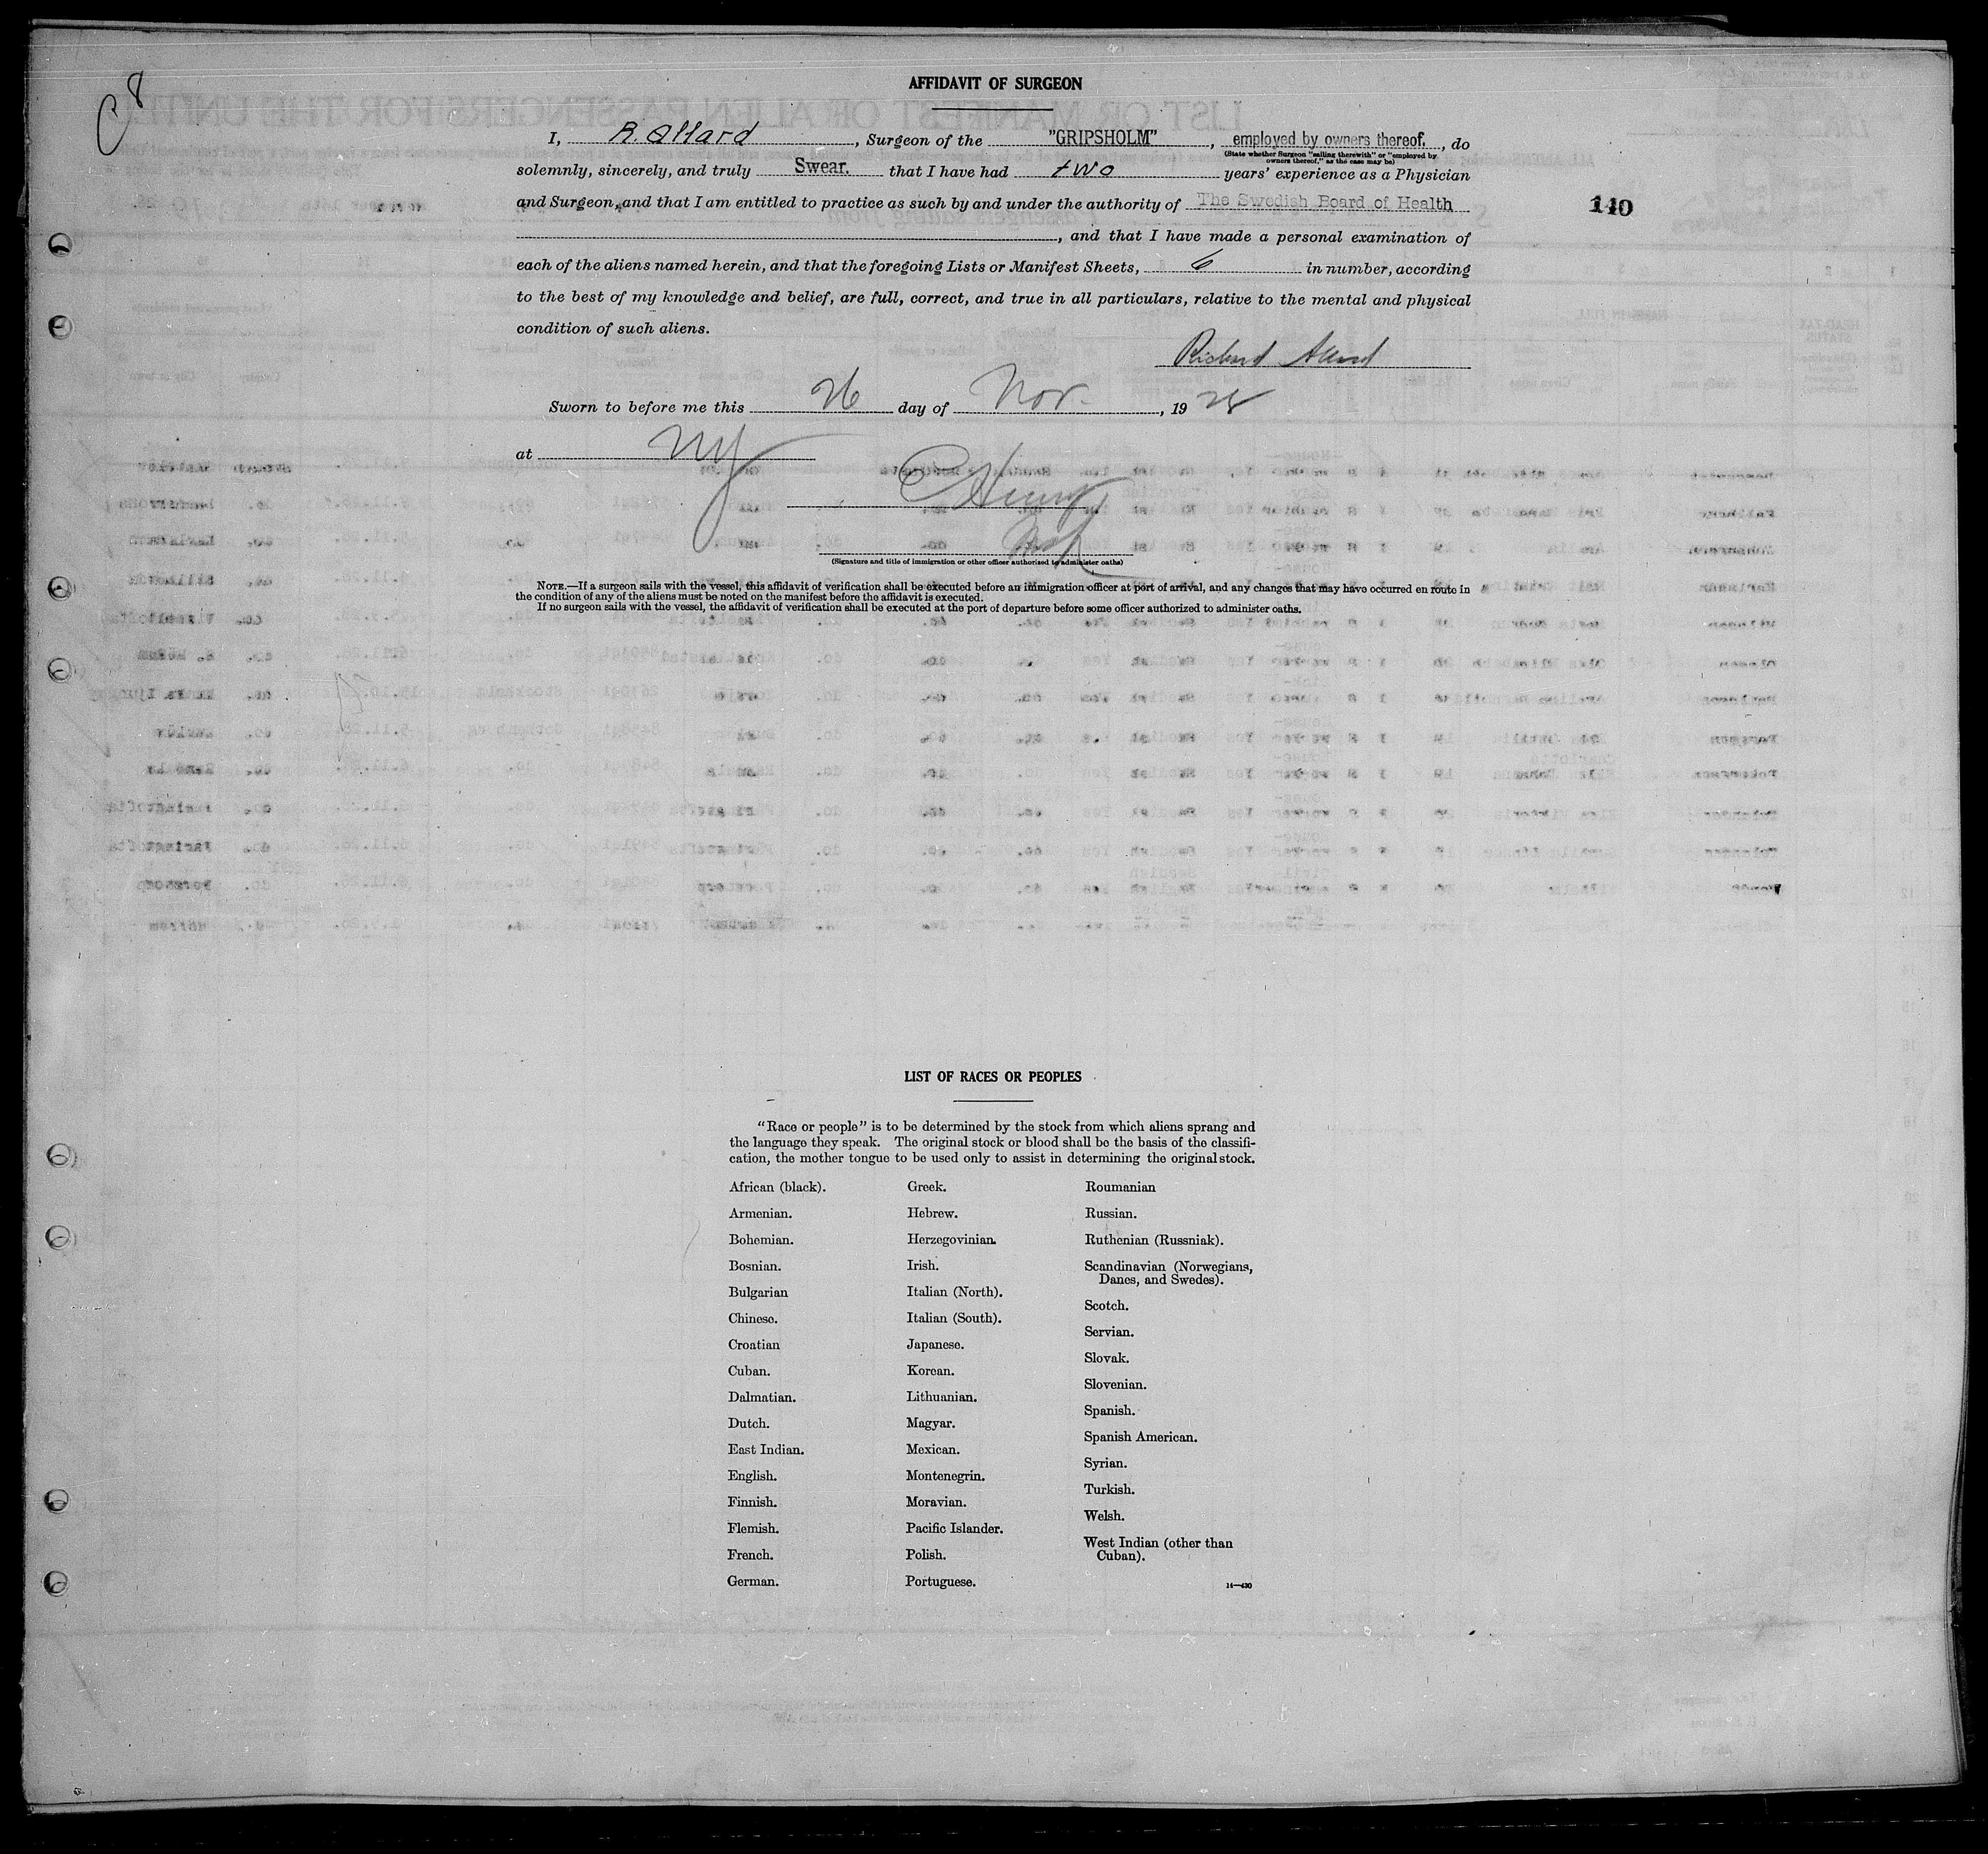 C 8
AFFIDAVIT OF SURGEON
I, R. Allard, Surgeon of the "GRIPSHOLM", employed by owners thereof., do
(State whether Surgeon "sailing therewith" or "employed by
owners thereof," as the case may be)
solemnly, sincerely, and truly Swear. that I have had two years' experience as a Physician
and Surgeon, and that I am entitled to practice as such by and under the authority of The Swedish Board of Health
110
, and that I have made a personal examination of
each of the aliens named herein, and that the foregoing Lists or Manifest Sheets, 6 in number, according
to the best of my knowledge and belief, are full, correct, and true in all particulars, relative to the mental and physical
condition of such aliens.
Richard Allard
Sworn to before me this 26 day of Nov., 1928
at NY
(Signature and title of immigration or other officer authorized to administer oaths)
NOTE.—If a surgeon sails with the vessel, this affidavit of verification shall be executed before an immigration officer at port of arrival, and any changes that may have occurred en route in
the condition of any of the aliens must be noted on the manifest before the affidavit is executed.
If no surgeon sails with the vessel, the affidavit of verification shall be executed at the port of departure before some officer authorized to administer oaths.
LIST OF RACES OR PEOPLES
"Race or people" is to be determined by the stock from which aliens sprang and
the language they speak. The original stock or blood shall be the basis of the classifi-
cation, the mother tongue to be used only to assist in determining the original stock.
African (black).
Armenian.
Bohemian.
Bosnian.
Bulgarian
Chinese.
Croatian
Cuban.
Dalmatian.
Dutch.
East Indian.
English.
Finnish.
Flemish.
French.
German.
Greek.
Hebrew.
Herzegovinian.
Irish.
Italian (North).
Italian (South).
Japanese.
Korean.
Lithuanian.
Magyar.
Mexican.
Montenegrin.
Moravian.
Pacific Islander.
Polish.
Portuguese.
Roumanian
Russian.
Ruthenian (Russniak).
Scandinavian (Norwegians,
Danes, and Swedes).
Scotch.
Servian.
Slovak.
Slovenian.
Spanish.
Spanish American.
Syrian.
Turkish.
Welsh.
West Indian (other than
Cuban).
14—430